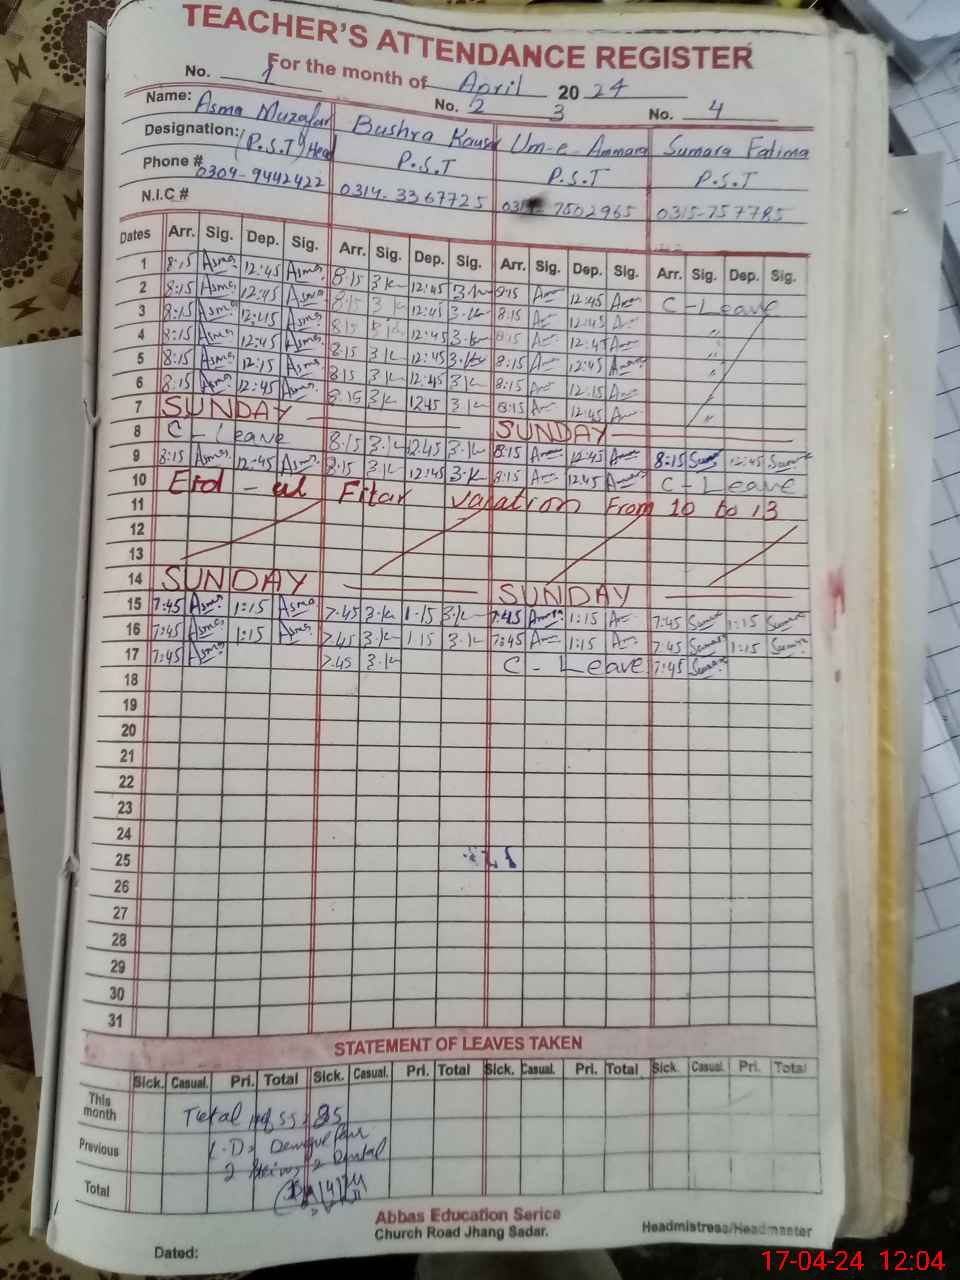 TEACHER'S ATTENDANCE REGISTER
For the month of April 20 24
No. 1 No. 2 3 No. 4
Name: Asma Muzafar Bushra Kausar Um-e-Ammara Sumara Fatima
Designation: (P.S.T) Head P.S.T P.S.T P.S.T
Phone # 0309-9442422 0314-3367725 7502965 0315-757785
N.I.C #
Dates Arr. Sig. Dep. Sig. Arr. Sig. Dep. Sig. Arr. Sig. Dep. Sig. Arr. Sig. Dep. Sig.
1 8:15 Asma 12:45 Asma 8:15 3.k 12:45 3.k 8:15 Am 12:45 Am C-Leave
2 8:15 Asma 12:45 Asma 8:15 3.k 12:45 3.k 8:15 Am 12:45 Am "
3 8:15 Asma 12:45 Asma 8:15 3.k 12:45 3.k 8:15 Am 12:45 Am "
4 8:15 Asma 12:45 Asma 8:15 3.k 12:45 3.k 8:15 Am 12:45 Am "
5 8:15 Asma 12:15 Asma 8:15 3.k 12:45 3.k 8:15 Am 12:15 Am
6 8:15 Asma 12:45 Asma 8:15 3.k 12:45 3.k 8:15 Am 12:45 Am
7 SUNDAY SUNDAY
8 C-Leave 8:15 3.k 12:45 3.k 8:15 Am 12:45 Am 8:15 Sum 12:45 Sum
9 8:15 Asma 12:45 Asma 8:15 3.k 12:45 3.k 8:15 Am 12:45 Am C-Leave
10 Eid-ul Fitar vacation From 10 to 13
11
12
13
14 SUNDAY SUNDAY
15 7:45 Asma 1:15 Asma 7:45 3.k 1:15 3.k 7:45 Am 1:15 Am 7:45 Sum 1:15 Sum
16 7:45 Asma 1:15 Asma 7:45 3.k 1:15 3.k 7:45 Am 1:15 Am 7:45 Sum 1:15 Sum
17 7:45 Asma 7:45 3.k C-Leave 7:45 Sum
18
19
20
21
22
23
24
25
26
27
28
29
30
31
STATEMENT OF LEAVES TAKEN
Sick. Casual. Pri. Total Sick. Casual. Pri. Total Sick. Casual. Pri. Total Sick. Casual. Pri. Total
This month Total
Previous
Total
Abbas Education Serice
Church Road Jhang Sadar.
Headmistress/Headmaster
Dated:
17-04-24 12:04